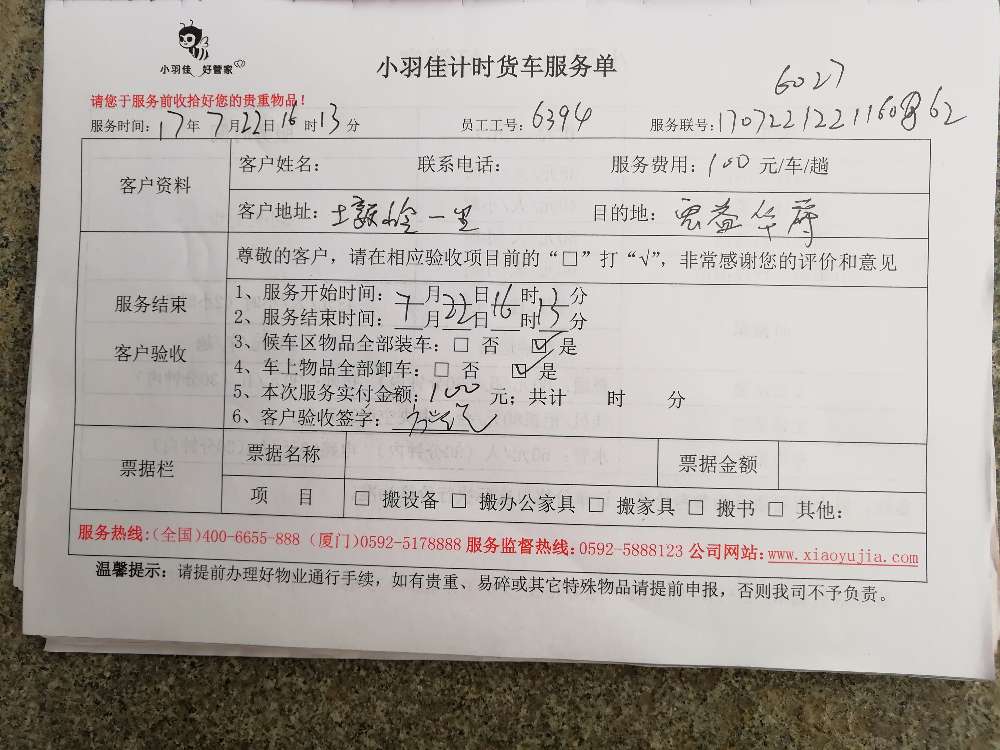 小羽佳 好管家
小羽佳计时货车服务单
6027
请您于服务前收拾好您的贵重物品！
服务时间：17年7月22日16时13分 员工工号：6394 服务联号：
客户资料
客户姓名： 联系电话： 服务费用：100元/车/趟
客户地址： 一里 目的地： 益华
服务结束
客户验收
尊敬的客户，请在相应验收项目前的“□”打“√”，非常感谢您的评价和意见
1、服务开始时间：7月22日16时13分
2、服务结束时间：__月22日__时13分
3、候车区物品全部装车：□ 否 ☑ 是
4、车上物品全部卸车：□ 否 ☑ 是
5、本次服务实付金额：100元；共计 时 分
6、客户验收签字：
票据栏
票据名称 票据金额
项 目 □ 搬设备 □ 搬办公家具 □ 搬家具 □ 搬书 □ 其他：
服务热线:(全国)400-6655-888（厦门)0592-5178888 服务监督热线:0592-5888123 公司网站:www.xiaoyujia.com
温馨提示：请提前办理好物业通行手续，如有贵重、易碎或其它特殊物品请提前申报，否则我司不予负责。